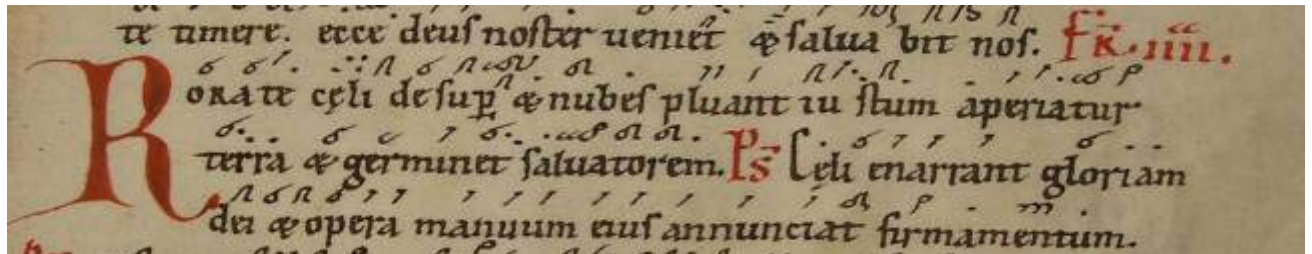 te timere. ecce deus noster ueniet & salua bit nos. Fr. IIII.
Rorate cęli desup & nubes pluant iu stum aperiatur
terra & germinet saluatorem. Ps Celi enarrant gloriam
dei & opera manuum eius annunciat firmamentum.